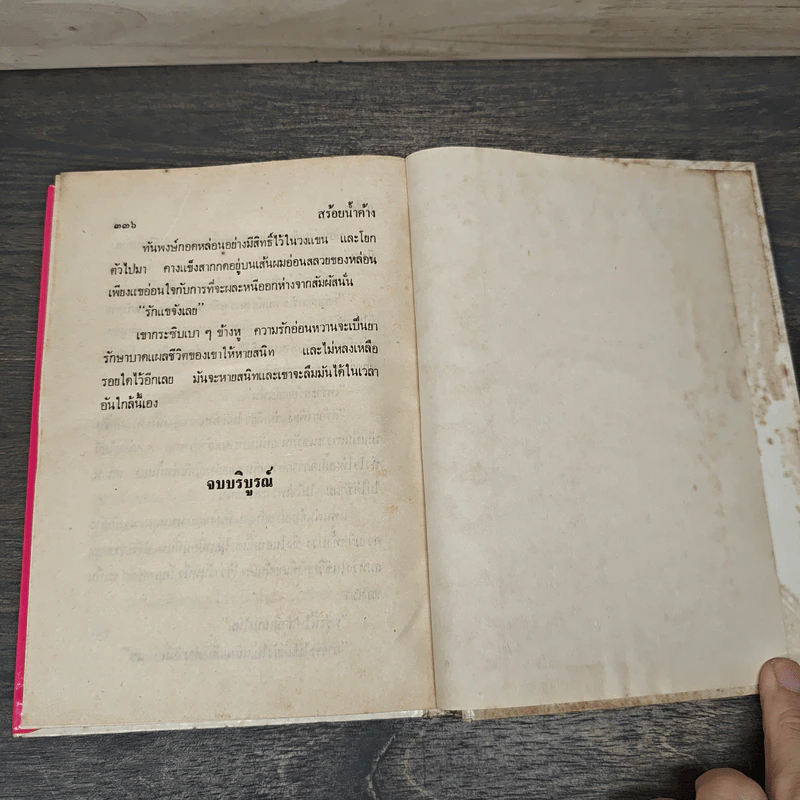 ๓๓๖ สร้อยน้ำค้าง
ทันพงษ์กอดหล่อนอย่างมีสิทธิ์ไว้ในวงแขน และโยก
ตัวไปมา คางแข็งสากกดอยู่บนเส้นผมอ่อนสลวยของหล่อน
เพียงแขอ่อนใจกับการที่จะผละหนีออกห่างจากสัมผัสนั้น
“รักแขจังเลย”
เขากระซิบเบา ๆ ข้างหู ความรักอ่อนหวานจะเป็นยา
รักษาบาดแผลชีวิตของเขาให้หายสนิท และไม่หลงเหลือ
รอยใดไว้อีกเลย มันจะหายสนิทและเขาจะลืมมันได้ในเวลา
อันใกล้นี้เอง
จบบริบูรณ์